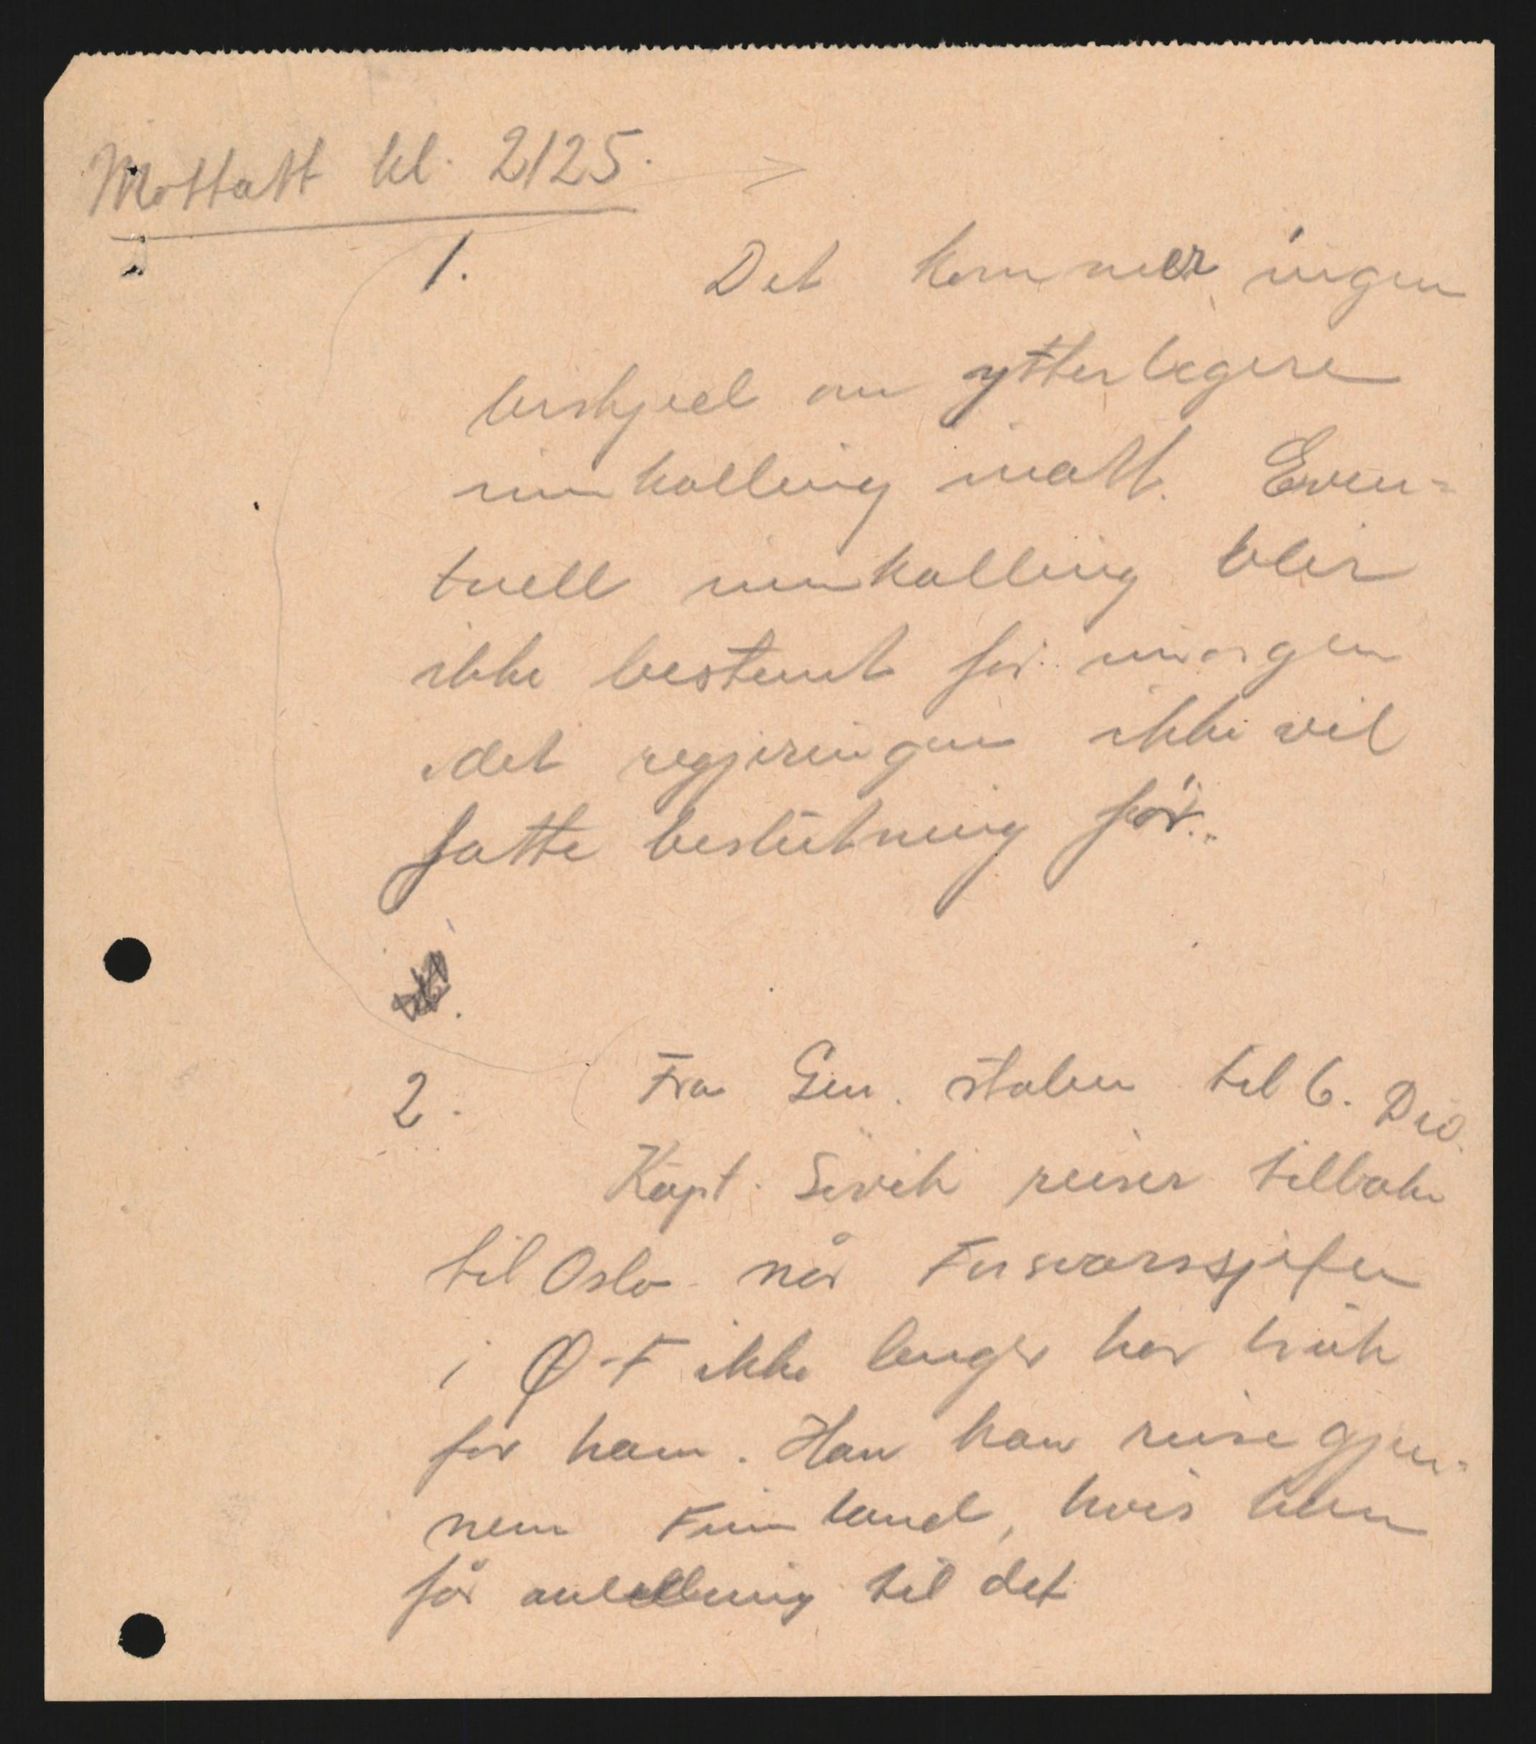 Mottatt kl. 2125.
1. Det kommer ingen
beskjed om ytterligere
innkalling inatt. Even-
tuell innkalling blir
ikke bestemt før imorgen
idet regjeringen ikke vil
fatte beslutning før.
2. Fra Gen. staben til 6. Div.
Kapt. reiser tilbake
til Oslo når Forsvarssjefen
i Ø-F ikke lenger har bruk
for ham. Han kan reise gjen-
nem Finnland, hvis han
får anledning til det